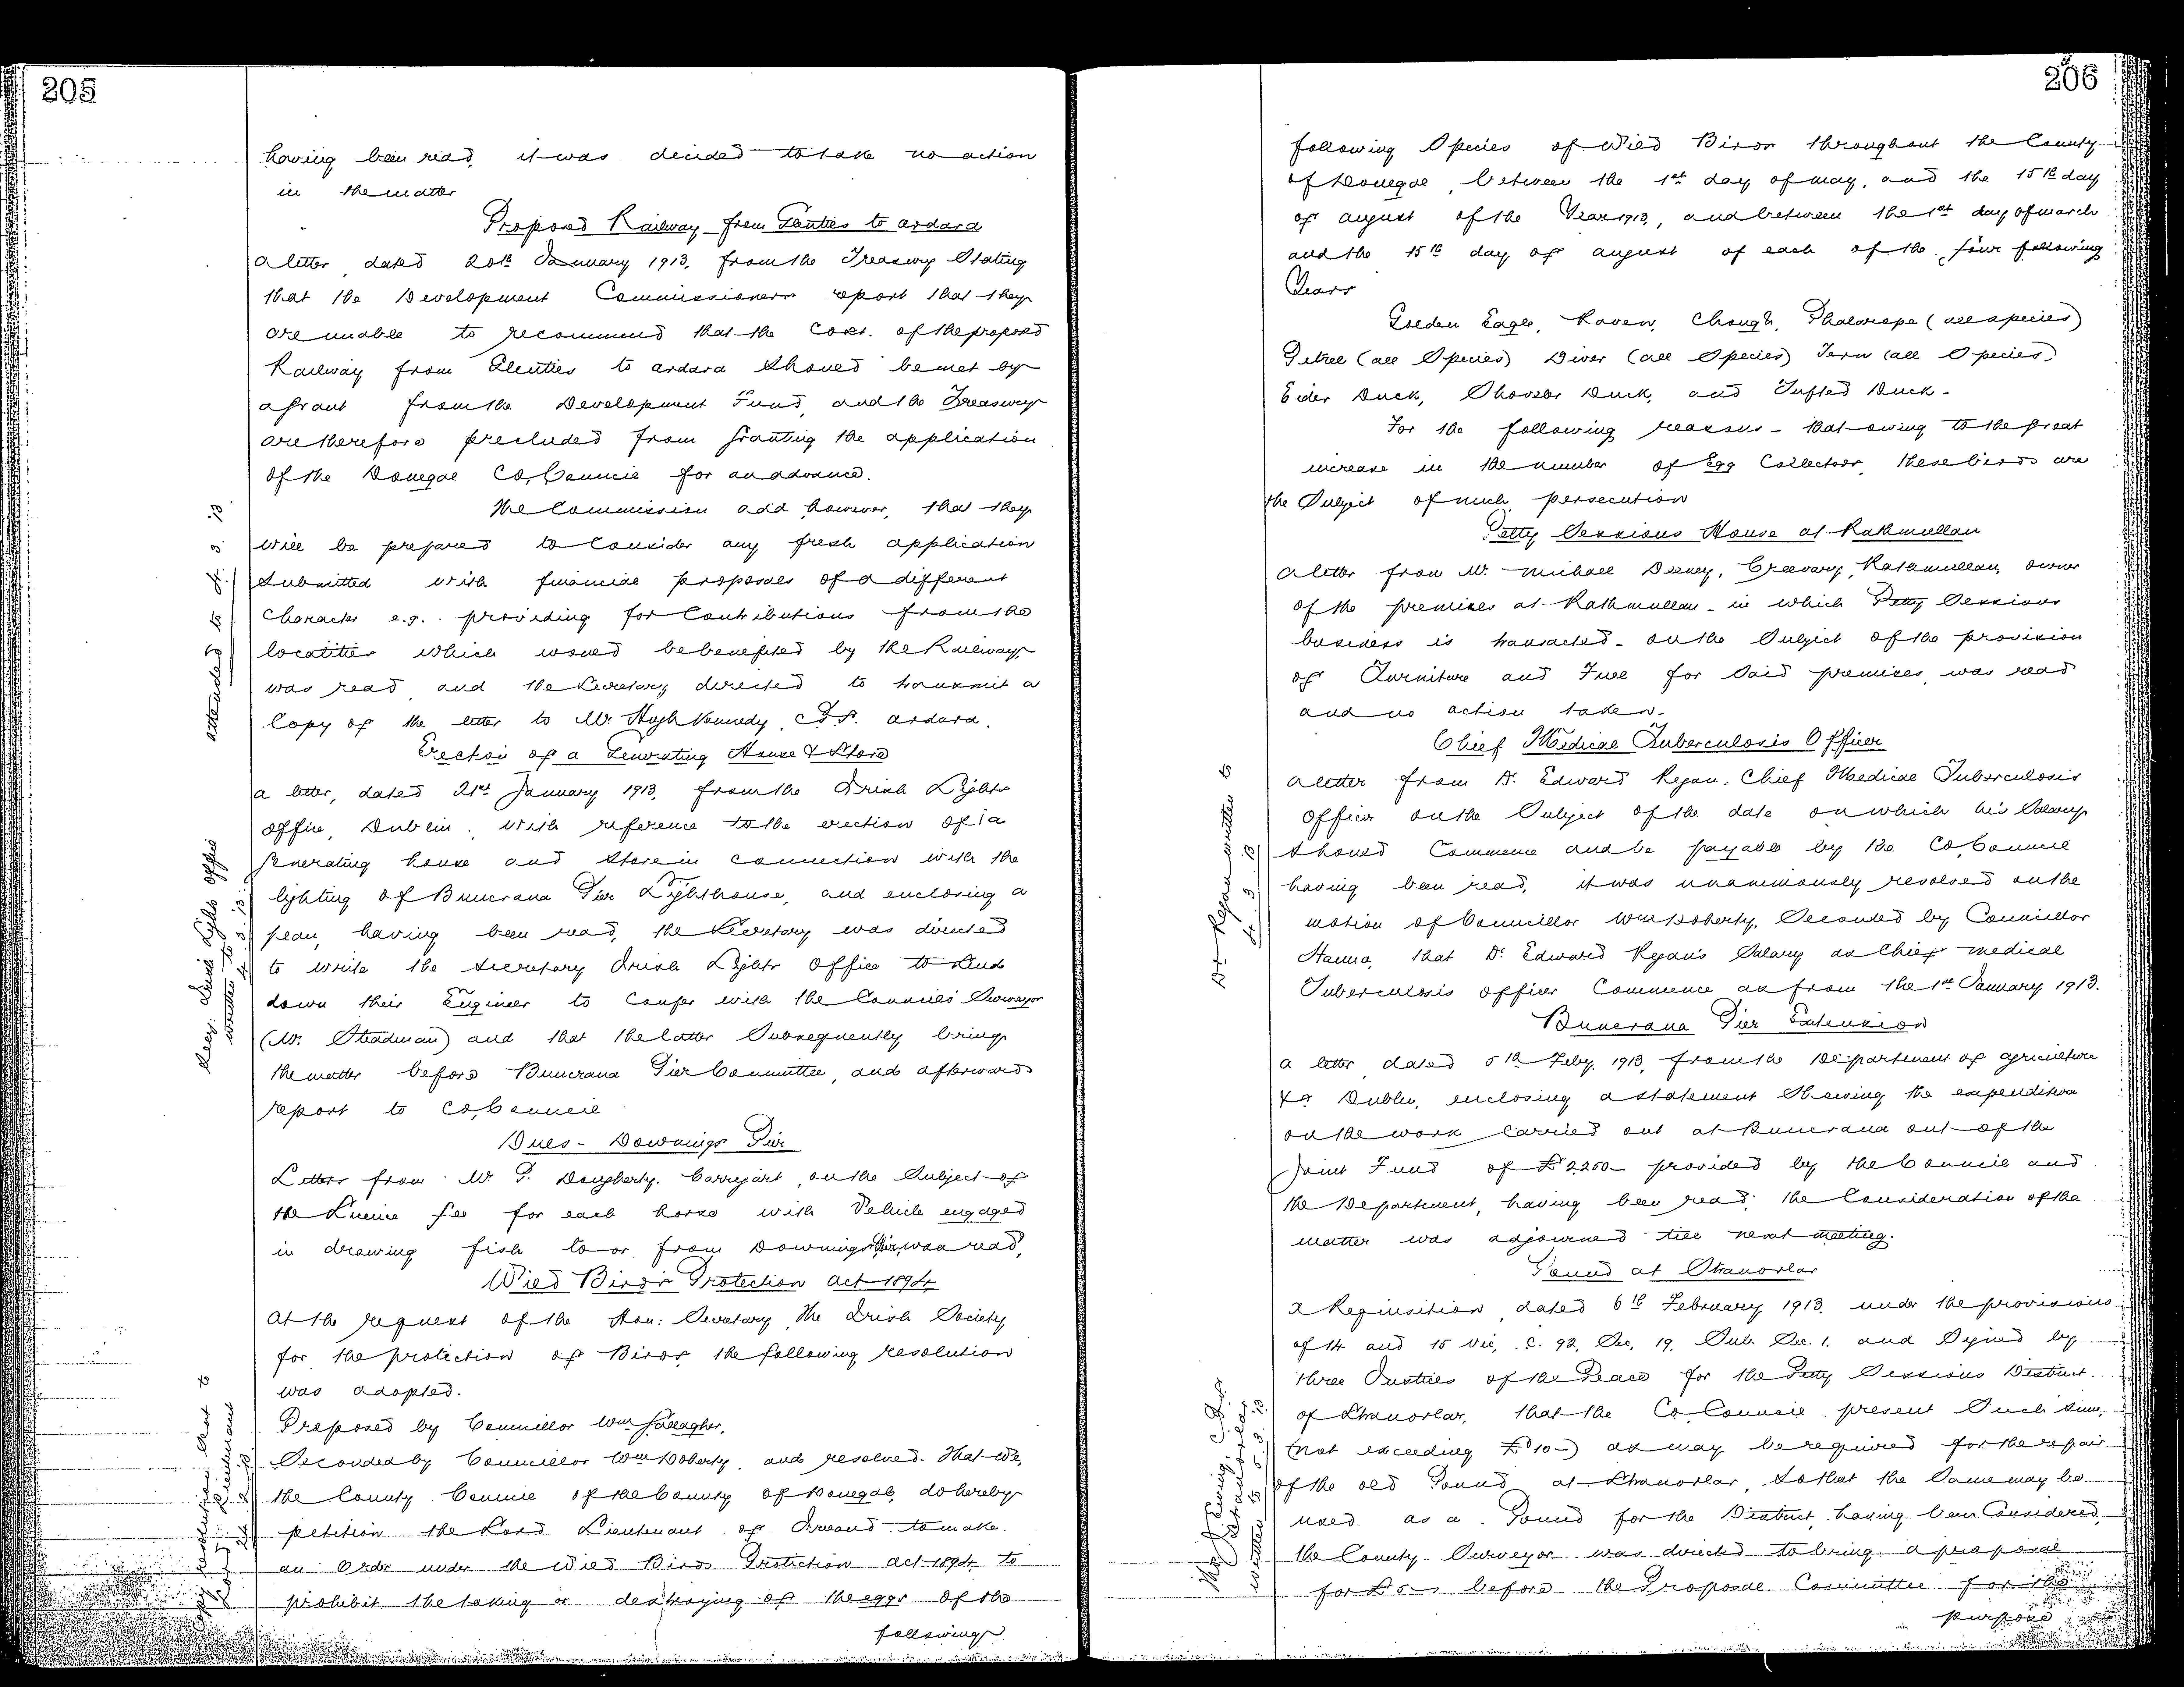 205
having been read, it was decided to take no action
in the matter
Proposed Railway from Glenties to Ardara
A letter, dated 20th January 1913, from the Treasury Stating
that the Development Commissioners report that they
are unable to recommend that the Cost of the proposed
Railway from Glenties to Ardara should be met by
a grant from the Development Fund, and the Treasury
are therefore precluded from granting the application
of the Donegal Co. Council for an advance.
The Commission add however, that they
will be prepared to Consider any fresh application
Submitted with financial proposals of a different
Character e.g. providing for Contributions from the
localities which would be benefited by the Railway,
was read, and the Secretary directed to transmit a
Copy of the letter to Mr. Hugh Kennedy, J.P. Ardara.
attended to 4. 3. 13
Erection of a Generating House & Store
A letter, dated 21st January 1913, from the Irish Lights
Office, Dublin, with reference to the erection of a
generating house and Store in connection with the
lighting of Buncrana Pier Lighthouse, and enclosing a
plan, having been read, the Secretary was directed
to write the Secretary Irish Lights Office to send
down their Engineer to Confer with the Council's Surveyor
(Mr. Steadman) and that the latter Subsequently bring
the matter before Buncrana Pier Committee, and afterwards
report to Co. Council
Secy. Irish Lights Office
written to 4. 3. 13
Dues - Downings Pier
Letter from Mr. P. Dougherty, Carrigart, on the Subject of
the Licence fee for each horse with Vehicle engaged
in drawing fish to or from Downings Pier, was read,
Wild Birds Protection Act 1894
At the request of the Hon: Secretary, The Irish Society
for the protection of Birds, the following resolution
was adopted.
Proposed by Councillor Wm Gallagher,
Seconded by Councillor Wm Doherty, and resolved - That we,
the County Council of the County of Donegal, do hereby
petition the Lord Lieutenant of Ireland to make
an Order under the Wild Birds Protection Act 1894, to
prohibit the taking or destroying of the eggs of the
following
Copy resolution sent to
Lieutenant
206
following Species of Wild Birds throughout the County
of Donegal, between the 1st day of May, and the 15th day
of August of the Year 1913, and between the 1st day of March
and the 15th day of August of each of the five following
Years
Golden Eagle, Raven, Chough, Phalarope (all species)
Petrel (all Species) Diver (all Species) Tern (all Species)
Eider Duck, Shoveler Duck, and Tufted Duck -
For the following reasons - that owing to the great
increase in the number of Egg Collectors, these birds are
the Subject of much persecution
Petty Sessions House at Rathmullan
A letter from Mr. Michael Deeney, Creevary, Rathmullan, owner
of the premises at Rathmullan - in which Petty Sessions
business is transacted - on the Subject of the provision
of Furniture and Fuel for Said premises, was read
and no action taken.
Chief Medical Tuberculosis Officer
A letter from Dr. Edward Ryan, Chief Medical Tuberculosis
Officer on the Subject of the date on which his Salary
should Commence and be payable by the Co. Council
having been read, it was unanimously resolved on the
motion of Councillor Wm Doherty, Seconded by Councillor
Hanna, that Dr. Edward Ryan's Salary as Chief Medical
Tuberculosis Officer Commence as from the 1st January 1913.
Dr. Ryan written to
4. 3. 13
Buncrana Pier Extension
A letter, dated 5th Feby. 1913, from the Department of Agriculture
&c Dublin, enclosing a statement Showing the expenditure
on the work carried out at Buncrana out of the
Joint Fund of £2250 - provided by the Council and
the Department, having been read, the Consideration of the
matter was adjourned till next meeting.
Pound at Stranorlar
A Requisition, dated 6th February 1913, under the provisions
of 14 and 15 Vic, C. 92, Sec. 19, Sub. Sec. 1. and Signed by
three Justices of the Peace for the Petty Sessions District
of Stranorlar, that the Co. Council present Such sum,
(not exceeding £10 -) as may be required for the repair
of the old Pound at Stranorlar, so that the Same may be
used as a Pound for the District, having been Considered,
the County Surveyor was directed to bring a proposal
for £5 - before the Proposal Committee for the
purpose
Mr J Ewing, J.P.
Stranorlar
written to 5. 3. 13